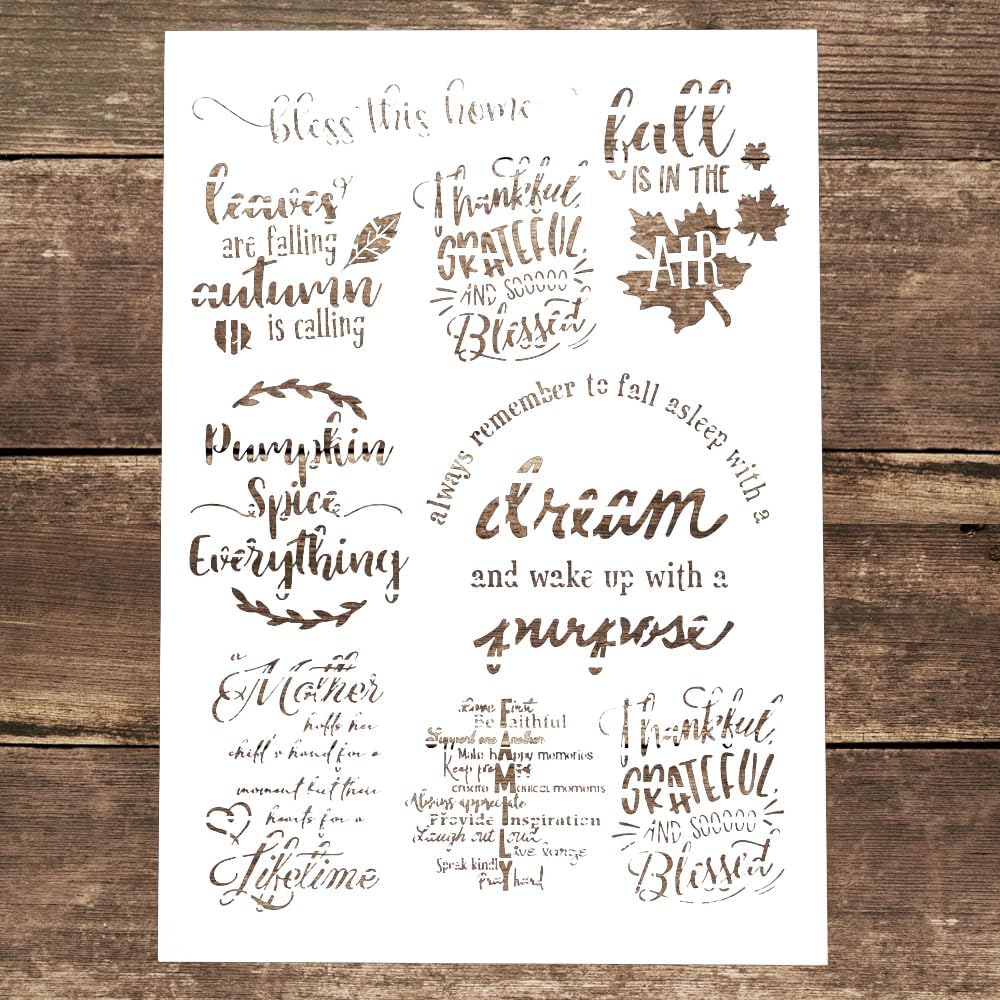 bless this home
leaves
are falling
autumn
is calling
Thankful,
GRATEFUL,
AND SOOOOO
Blessed
fall
IS IN THE
AIR
Pumpkin
Spice
Everything
always remember to fall asleep with a
dream
and wake up with a
purpose
a
Mother
holds her
child's hand for a
moment but their
hearts for a
Lifetime
Love First
Be Faithful
Support one Another
Make happy memories
Keep promises
create Magical moments
Always appreciate
Provide Inspiration
Laugh out Loud
Live Large
Speak kindly
Pray hard
FAMILY
Thankful,
GRATEFUL,
AND SOOOOO
Blessed